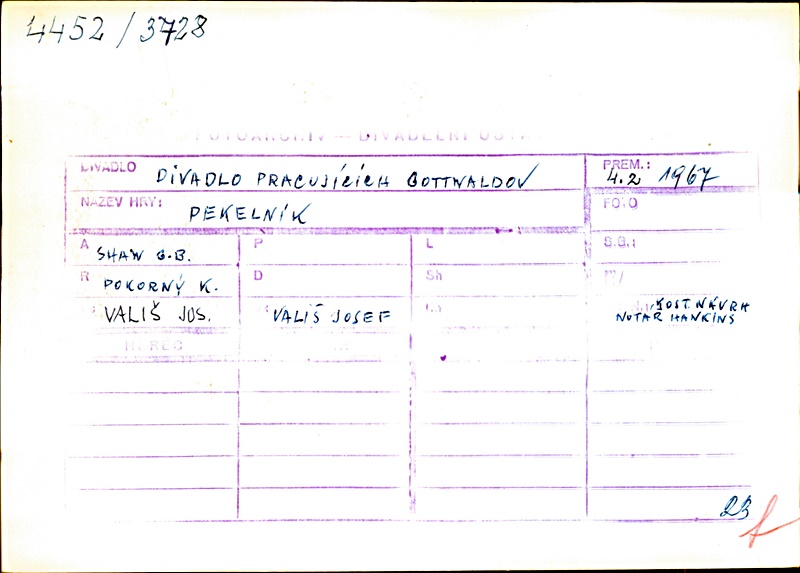 4452/3728
FOTOARCHIV – DIVADELNÍ
DIVADLO DIVADLO PRACUJÍCÍCH GOTTWALDOV PREM.: 4.2 1967
NÁZEV HRY: PEKELNÍK FOTO
A SHAW G.B. P L
R POKORNÝ K. D Sh
VALIŠ JOS. VALIŠ JOSEF KOST. NÁVRH
NOTÁŘ HANKINS
HEREC
23